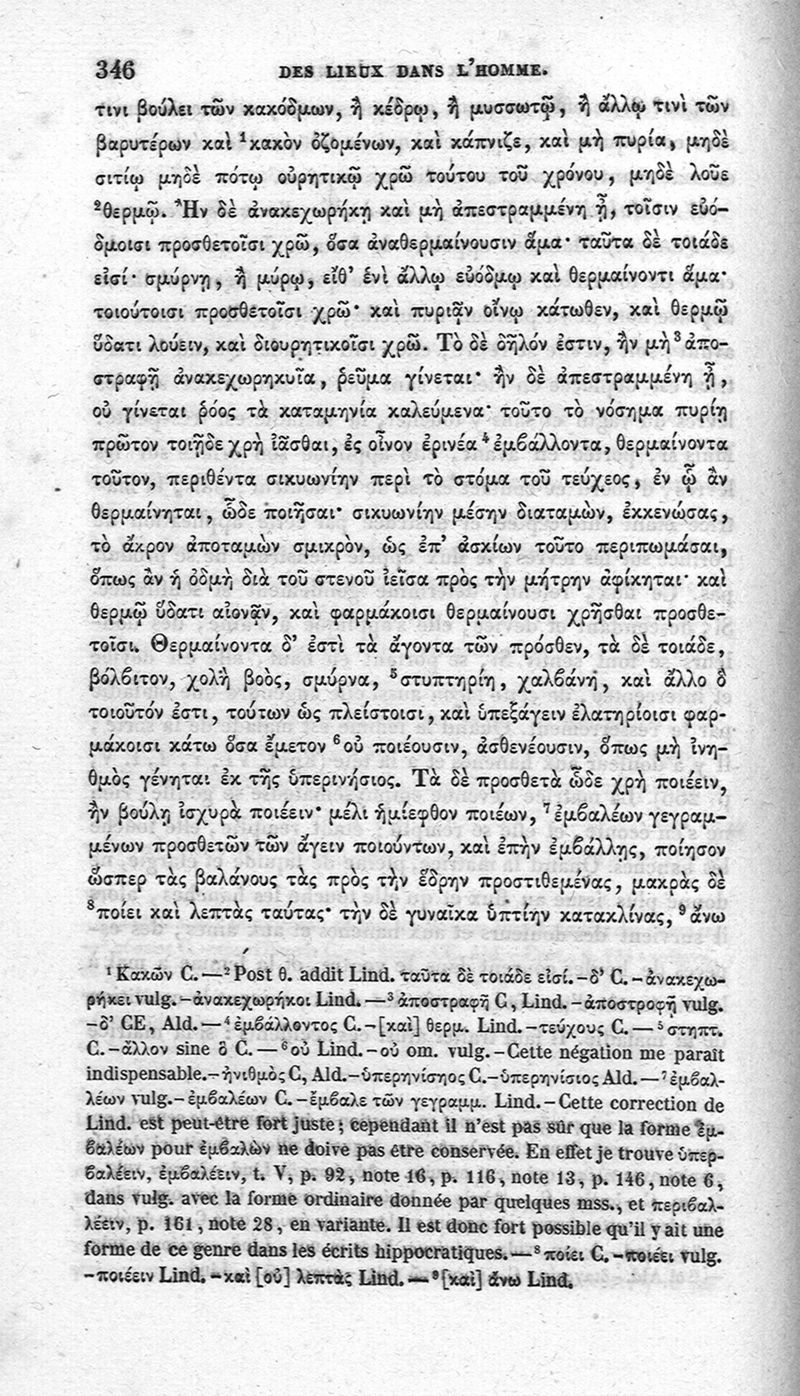 346 DES LIEUX DANS L'HOMME.
τινι βούλει τῶν κακόδμων, ἢ κέδρῳ, ἢ μυσσωτῷ, ἢ ἄλλῳ τινὶ τῶν
βαρυτέρων καὶ ¹κακὸν ὀζομένων, καὶ κάπνιζε, καὶ μὴ πυρία, μηδὲ
σιτίῳ μηδὲ πότῳ οὐρητικῷ χρῶ τούτου τοῦ χρόνου, μηδὲ λοῦε
²θερμῷ. Ἢν δὲ ἀνακεχωρήκῃ καὶ μὴ ἀπεστραμμένη ᾖ, τοῖσιν εὐό-
δμοισι προσθετοῖσι χρῶ, ὅσα ἀναθερμαίνουσιν ἅμα· ταῦτα δὲ τοιάδε
εἰσί· σμύρνῃ, ἢ μύρῳ, εἴθ' ἑνὶ ἄλλῳ εὐόδμῳ καὶ θερμαίνοντι ἅμα·
τοιούτοισι προσθετοῖσι χρῶ· καὶ πυριᾷν οἴνῳ κάτωθεν, καὶ θερμῷ
ὕδατι λούειν, καὶ διουρητικοῖσι χρῶ. Τὸ δὲ δῆλόν ἐστιν, ἢν μὴ ³ἀπο-
στραφῇ ἀνακεχωρηκυῖα, ῥεῦμα γίνεται· ἢν δὲ ἀπεστραμμένη ᾖ,
οὐ γίνεται ῥόος τὰ καταμηνία καλεύμενα· τοῦτο τὸ νόσημα πυρίῃ
πρῶτον τοιῇδε χρὴ ἰᾶσθαι, ἐς οἶνον ἐρινέα ⁴ἐμϐάλλοντα, θερμαίνοντα
τοῦτον, περιθέντα σικυωνίην περὶ τὸ στόμα τοῦ τεύχεος, ἐν ᾧ ἂν
θερμαίνηται, ὧδε ποιῆσαι· σικυωνίην μέσην διαταμὼν, ἐκκενώσας,
τὸ ἄκρον ἀποταμὼν σμικρὸν, ὡς ἐπ' ἀσκίων τοῦτο περιπωμάσαι,
ὅπως ἂν ἡ ὀδμὴ διὰ τοῦ στενοῦ ἰεῖσα πρὸς τὴν μήτρην ἀφίκηται· καὶ
θερμῷ ὕδατι αἰονᾷν, καὶ φαρμάκοισι θερμαίνουσι χρῆσθαι προσθε-
τοῖσι. Θερμαίνοντα δ' ἐστὶ τὰ ἄγοντα τῶν πρόσθεν, τὰ δὲ τοιάδε,
βόλϐιτον, χολὴ βοὸς, σμύρνα, ⁵στυπτηρίη, χαλϐάνη, καὶ ἄλλο ὃ
τοιοῦτόν ἐστι, τούτων ὡς πλείστοισι, καὶ ὑπεξάγειν ἐλατηρίοισι φαρ-
μάκοισι κάτω ὅσα ἔμετον ⁶οὐ ποιέουσιν, ἀσθενέουσιν, ὅπως μὴ ἰνη-
θμὸς γένηται ἐκ τῆς ὑπερινήσιος. Τὰ δὲ προσθετὰ ὧδε χρὴ ποιέειν,
ἢν βούλῃ ἰσχυρὰ ποιέειν· μέλι ἡμίεφθον ποιέων, ⁷ἐμϐαλέων γεγραμ-
μένων προσθετῶν τῶν ἄγειν ποιούντων, καὶ ἐπὴν ἐμϐάλλῃς, ποίησον
ὥσπερ τὰς βαλάνους τὰς πρὸς τὴν ἕδρην προστιθεμένας, μακρὰς δὲ
⁸ποίει καὶ λεπτὰς ταύτας· τὴν δὲ γυναῖκα ὑπτίην κατακλίνας, ⁹ἄνω
¹ Κακῶν C. — ² Post θ. addit Lind. ταῦτα δὲ τοιάδε εἰσί. – δ' C. – ἀνακεχω-
ρήκει vulg. – ἀνακεχωρήκοι Lind. — ³ ἀποστραφῇ C, Lind. – ἀποστροφῇ vulg.
– δ' CE, Ald. — ⁴ ἐμϐάλλοντος C. – [καὶ] θερμ. Lind. – τεύχους C. — ⁵ στηπτ.
C. – ἄλλον sine ὃ C. — ⁶ οὐ Lind. – οὐ om. vulg. – Cette négation me paraît
indispensable. – ἠνιθμὸς C, Ald. – ὑπερηνίσηος C. – ὑπερηνίσιος Ald. — ⁷ ἐμϐαλ-
λέων vulg. – ἐμϐαλέων C. – ἔμϐαλε τῶν γεγραμμ. Lind. – Cette correction de
Lind. est peut-être fort juste; cependant il n'est pas sûr que la forme ἐμ-
ϐαλέων pour ἐμϐαλὼν ne doive pas être conservée. En effet je trouve ὑπερ-
ϐαλέειν, ἐμϐαλέειν, t. V, p. 92, note 16, p. 116, note 13, p. 146, note 6,
dans vulg. avec la forme ordinaire donnée par quelques mss., et περιϐαλ-
λέειν, p. 161, note 28, en variante. Il est donc fort possible qu'il y ait une
forme de ce genre dans les écrits hippocratiques. — ⁸ ποίει C. – ποιέει vulg.
– ποιέειν Lind. – καὶ [οὐ] λεπτὰς Lind. — ⁹ [καὶ] ἄνω Lind.